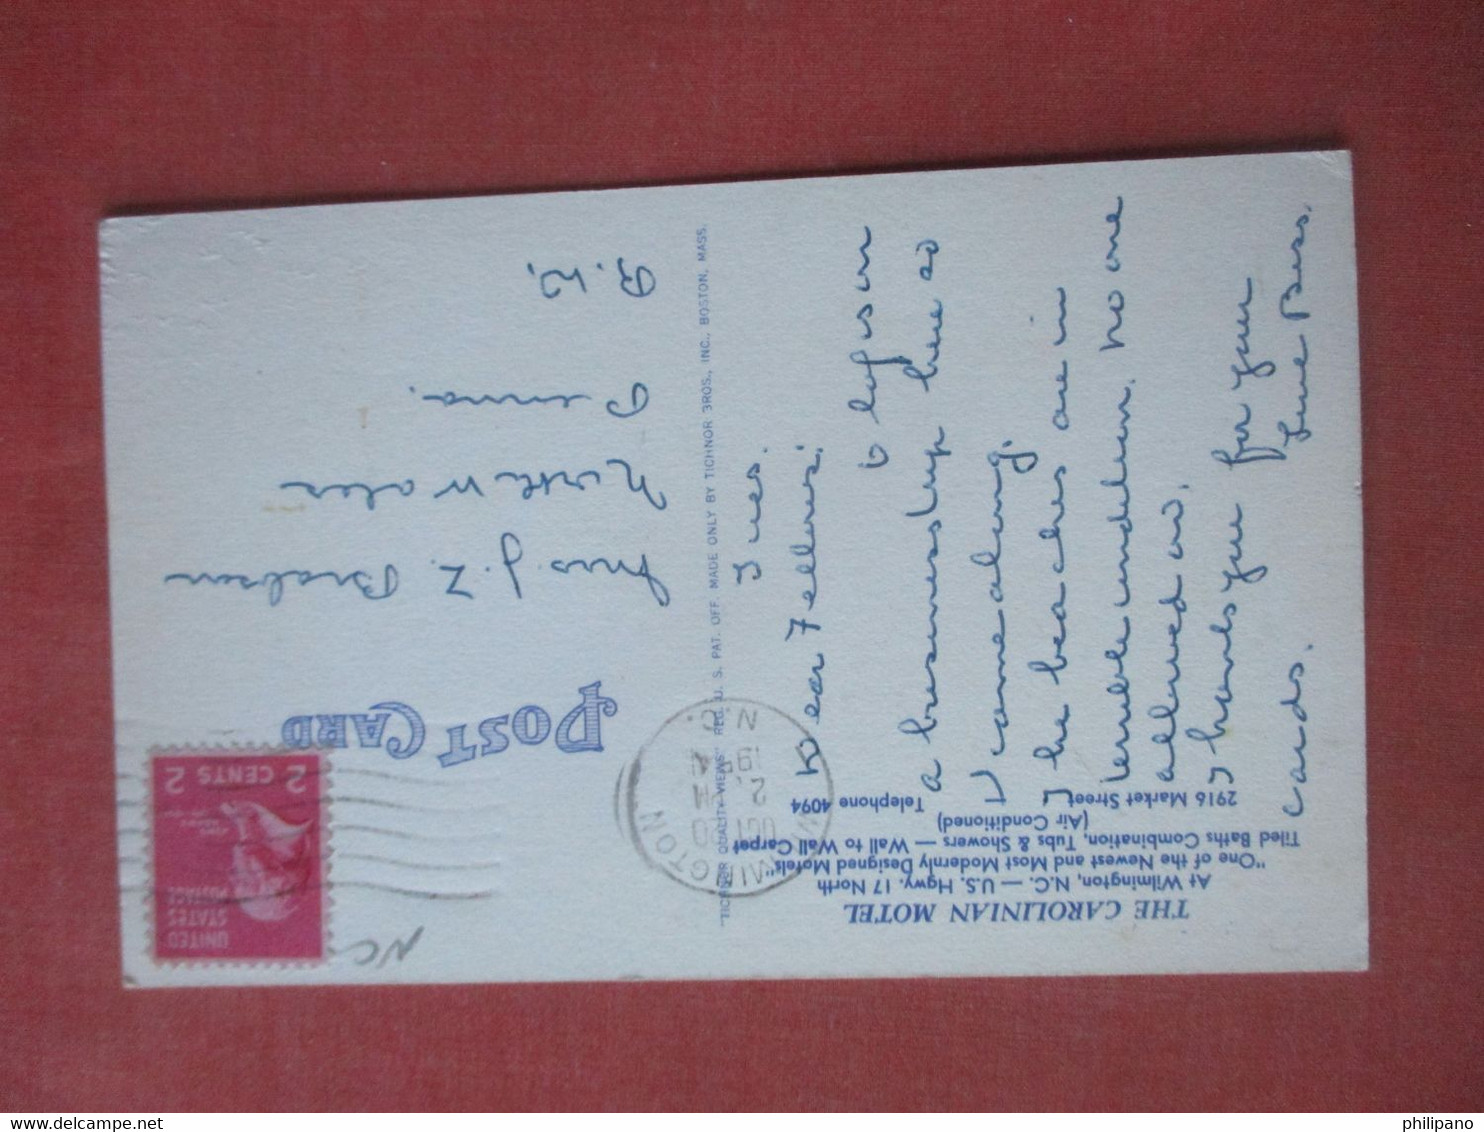 THE CAROLINIAN MOTEL
At Wilmington, N.C. — U.S. Hgwy. 17 North
"One of the Newest and Most Modernly Designed Motels"
Tiled Baths Combination, Tubs & Showers — Wall to Wall Carpet
(Air Conditioned)
2916 Market Street Telephone 4094
Tues.
Dear Fellows:
a business trip here so
I came along.
The beaches are in
terrible condition. No one
allowed on.
Thank you for your
cards.
Love Bess.
"HONOR QUALITY VIEWS" REG. U. S. PAT. OFF. MADE ONLY BY TICHNOR BROS., INC., BOSTON, MASS.
POST CARD
WILMINGTON
OCT 20
2 PM
1954
N.C.
UNITED
STATES
POSTAGE
2 CENTS 2
NC
Mrs J. Z.
North Wales
Penna.
R.D.
philipano